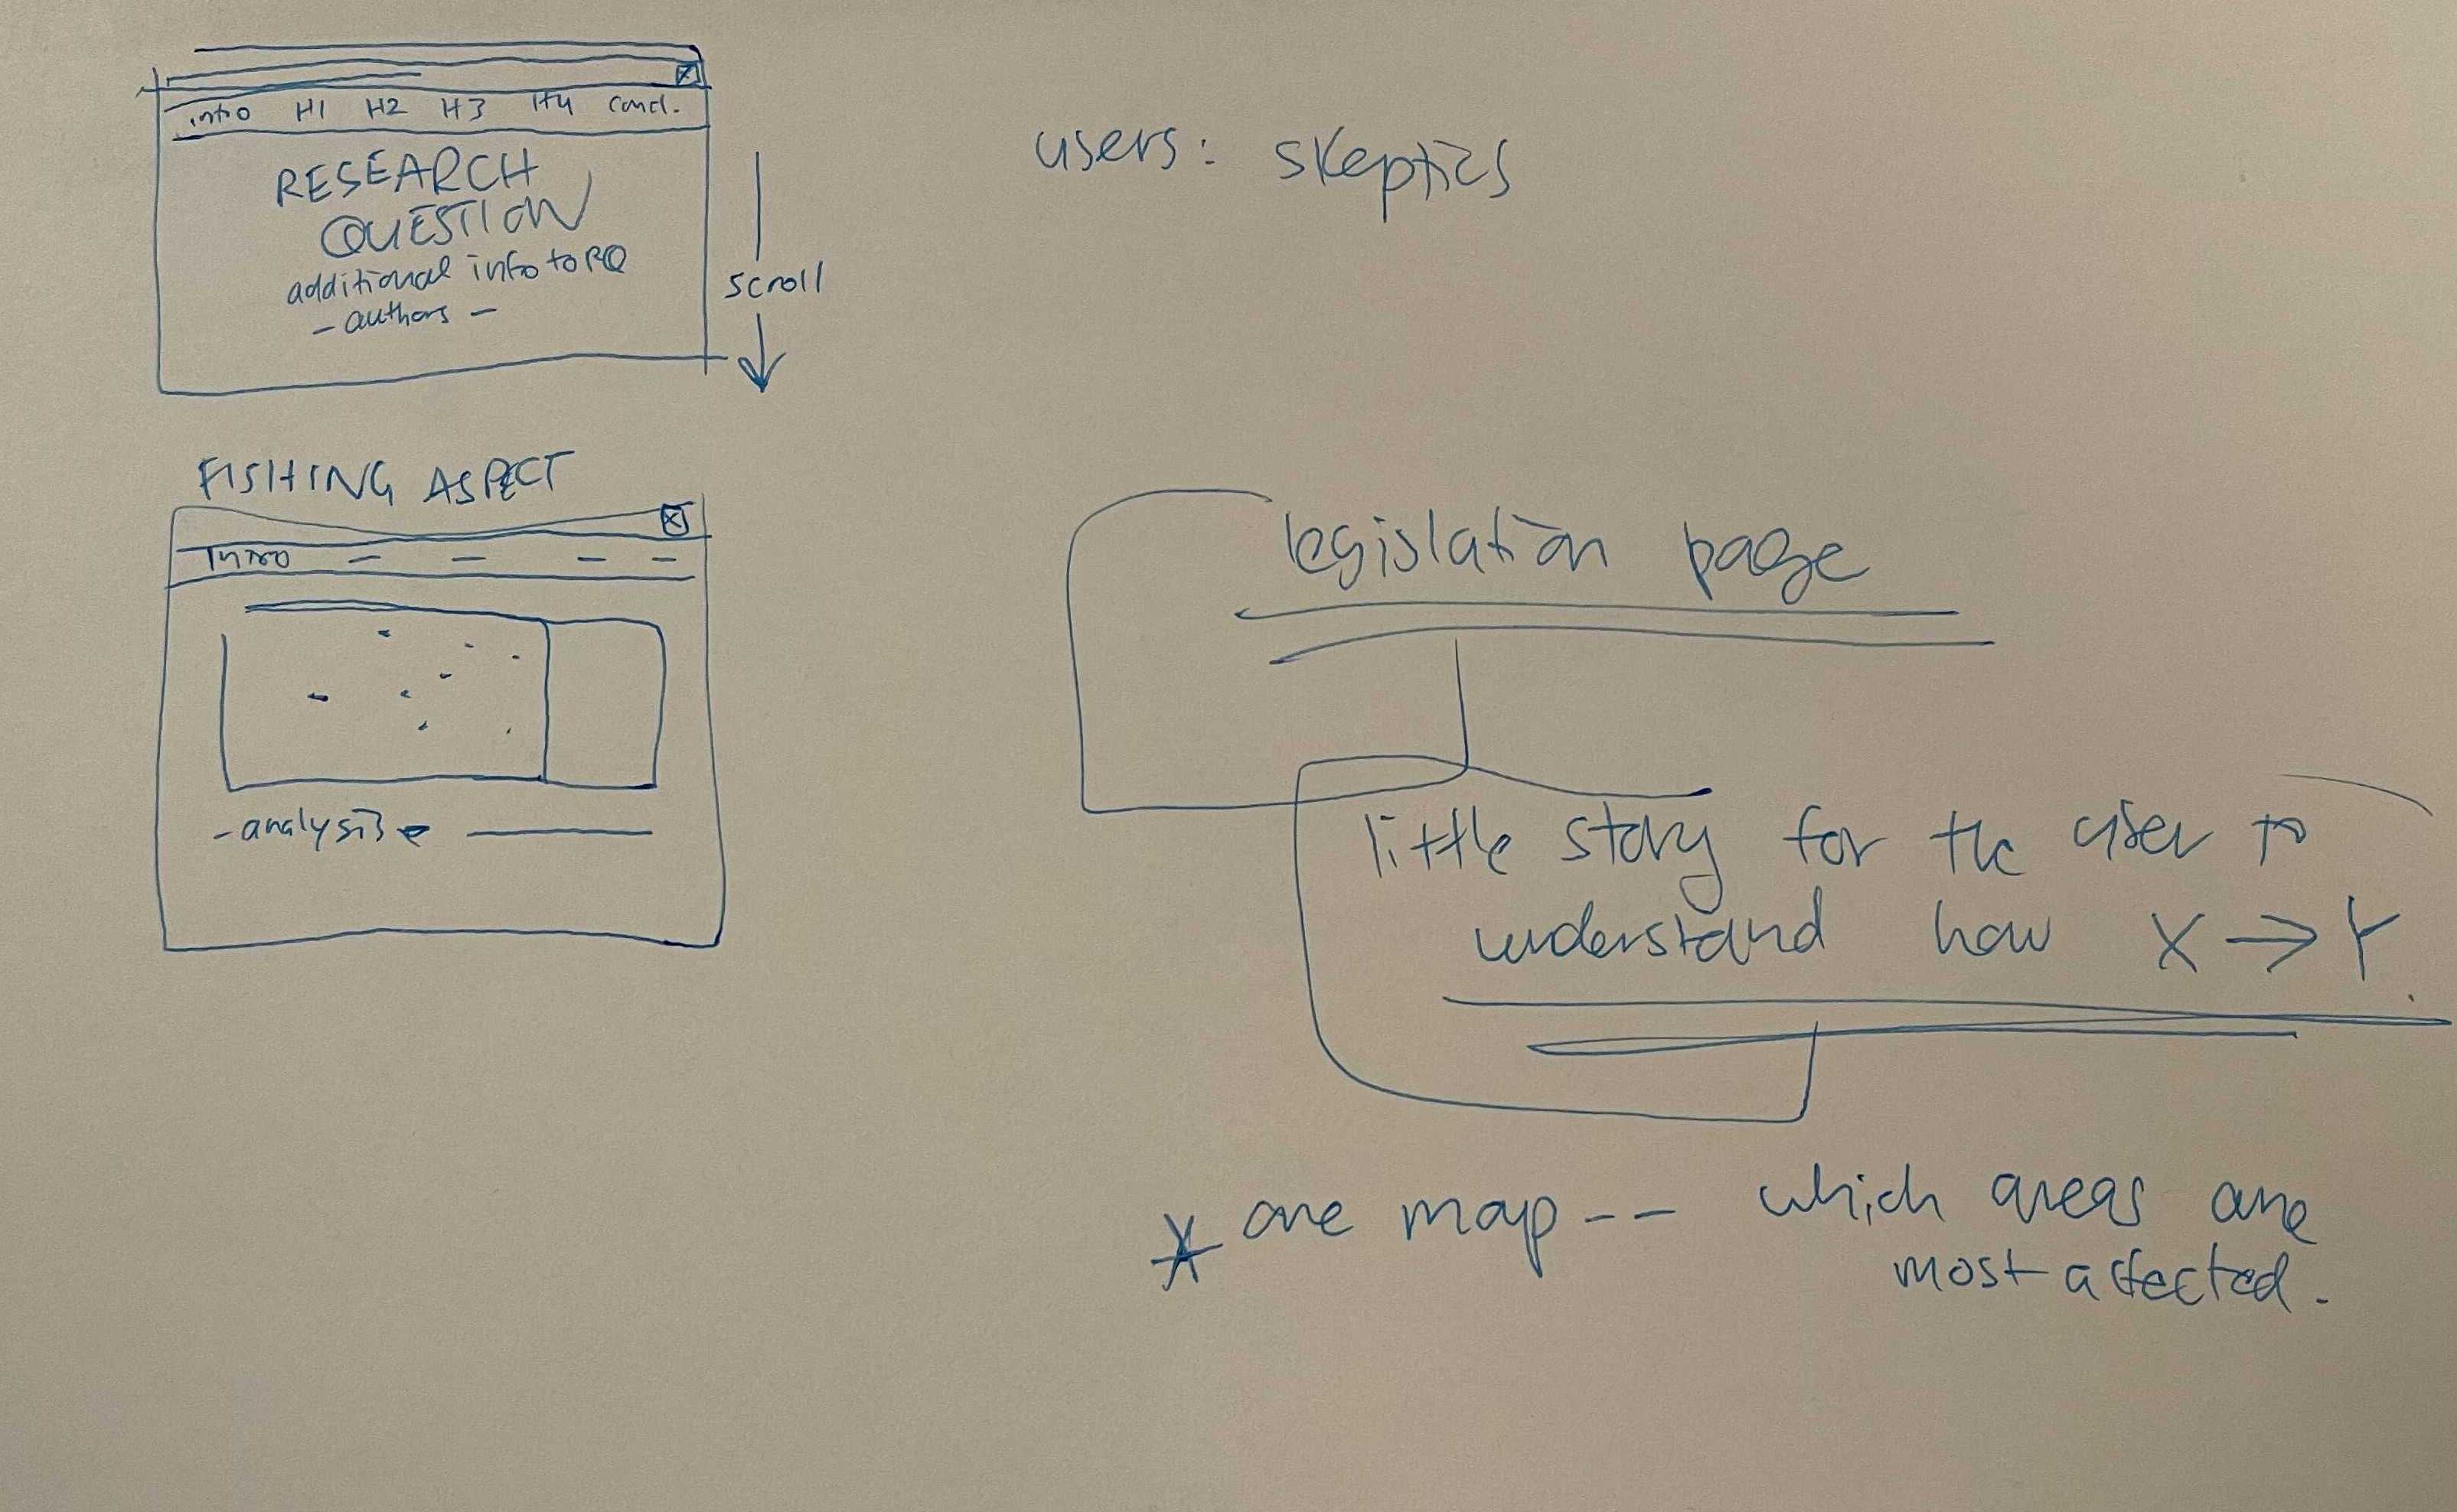 intro H1 H2 H3 H4 concl.
RESEARCH
QUESTION
additional info to RQ
- authors -
scroll
users: skeptics
FISHING ASPECT
Intro
- analysis
legislation page
little story for the user to
understand how X → Y.
* one map -- which areas are
most affected.